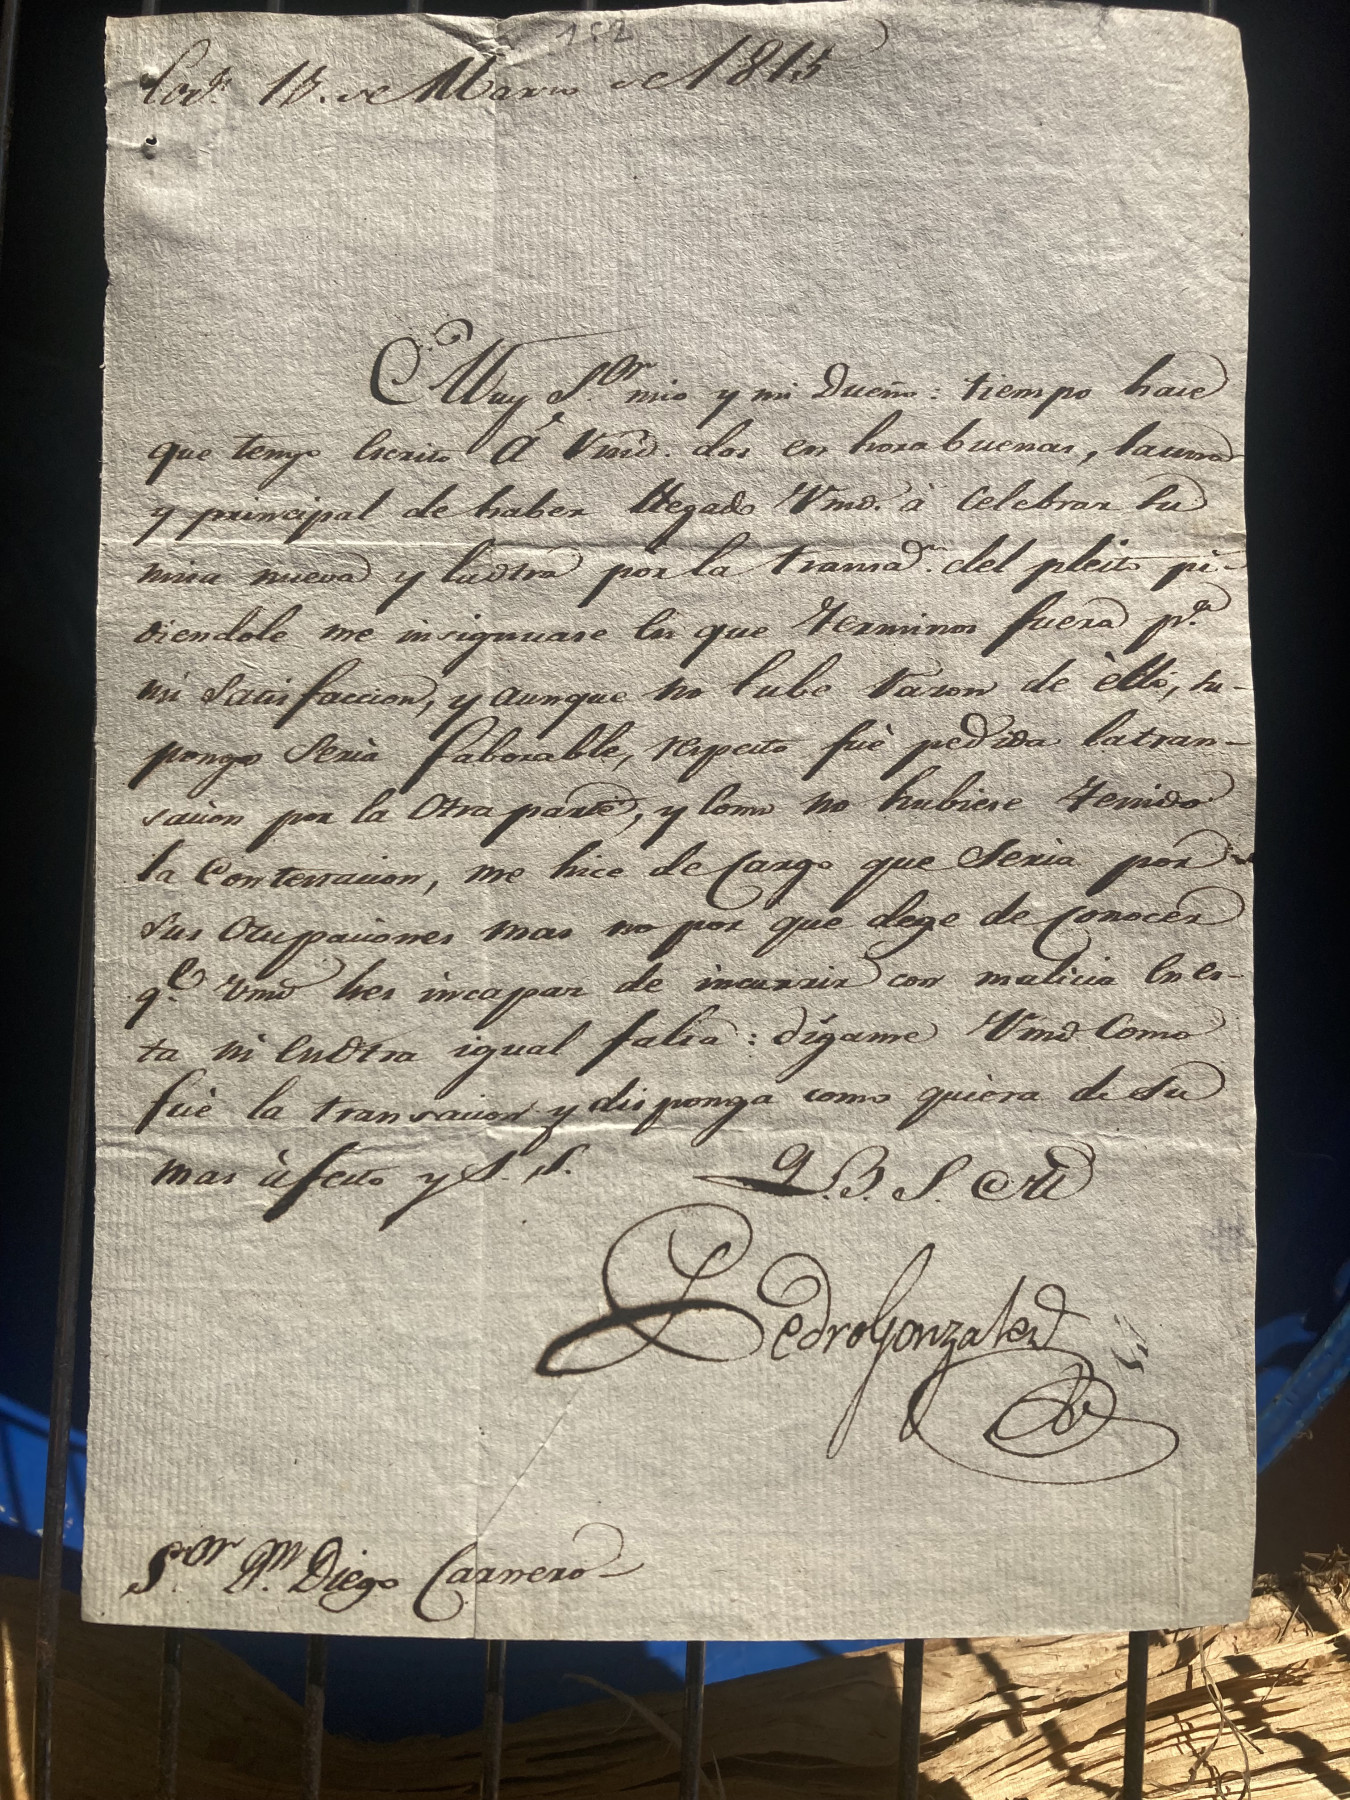 152
Cord.ª 15. de Marzo de 1815
Muy S.or mio y mi Dueño: tiempo hace
que tengo escrito â Vmd. dos en horabuenas, la una
y principal de haber llegado Vmd. à Celebrar su
misa nueva y la otra por la transa.on del pleito pi-
diendole me insignuase en que terminos fuera p.ª
mi satisfaccion, y aunque no tube razon de èllo, su-
pongo seria faborable, respecto fuè pedida la tran-
sacion por la otra parte, y como no hubiese tenido
la Contestacion, me hice de Cargo que seria por
sus ocupaciones mas no por que dege de Conocer
q.e Vmd hes incapaz de incurrir con malicia en es-
ta ni en otra igual falta: dígame Vmd como
fuè la transacion y disponga como quiera de su
mas àfecto y S. S.
Q. B. S. M
Pedro Gonzalez
S.or D.n Diego Carnero